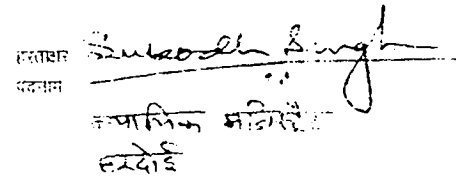 हस्ताक्षर Subodh Singh
पदनाम
न्यायिक मजिस्ट्रेट
हरदोई